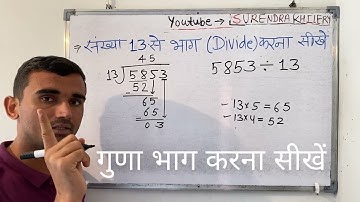 Youtube → SURENDRA KHILERY
⇒ संख्या 13 से भाग (Divide) करना सीखें
45
13 ) 5853
- 52
65
- 65
03
5853 ÷ 13
- 13×5 = 65
- 13×4 = 52
गुणा भाग करना सीखें